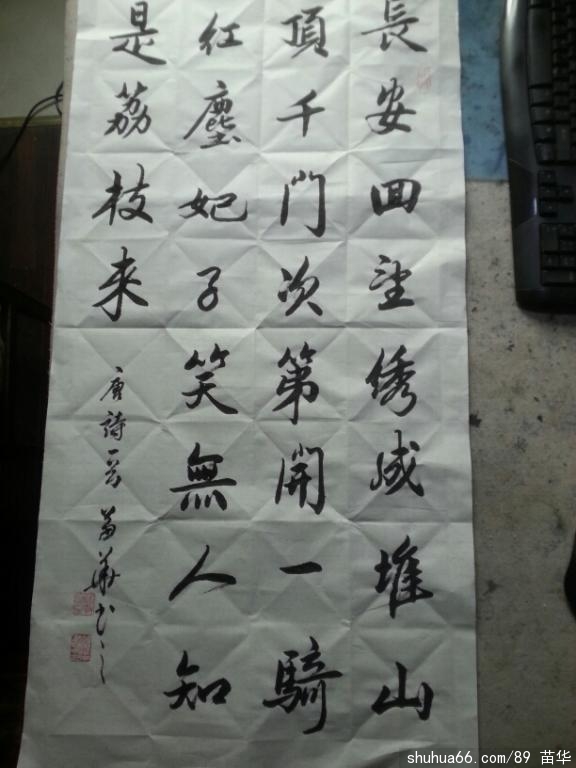 長安回望绣成堆山
頂千門次第開一騎
红塵妃子笑無人知
是荔枝来
唐詩一首 苗華书之
shuhua66.com/89 苗华